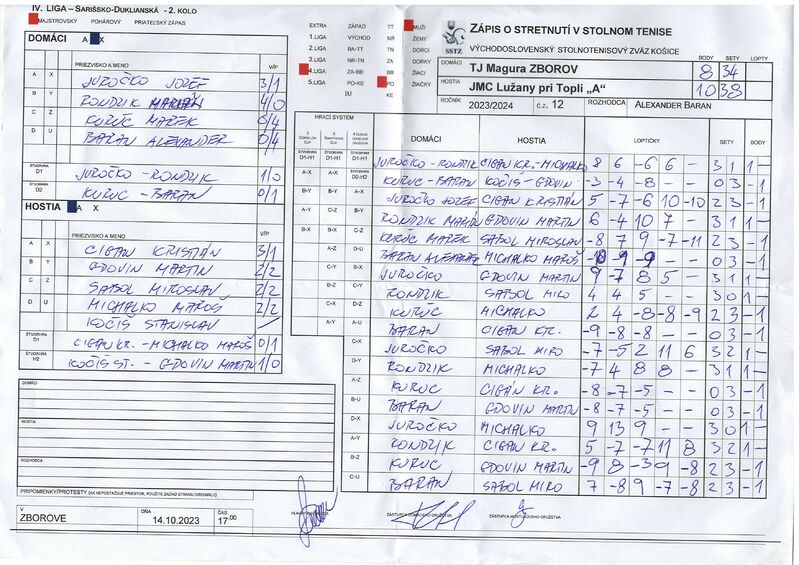 IV. LIGA – SARIŠSKO-DUKLIANSKÁ - 2. KOLO
MAJSTROVSKÝ POHÁROVÝ PRIATEĽSKÝ ZÁPAS
DOMÁCI A X
PRIEZVISKO A MENO V/P
A X JUROČKO JOZEF 3/1
B Y RONDZIK MARIÁN 4/0
C Z KURUC MAREK 0/4
D U BARAN ALEXANDER 0/4
ŠTVORHRA D1 JUROČKO - RONDZIK 1/0
D2 KURUC - BARAN 0/1
HOSTIA A X
PRIEZVISKO A MENO V/P
A X CIGAN KRISTIÁN 3/1
B Y GDOVIN MARTIN 2/2
C Z SABOL MIROSLAV 2/2
D U MICHALKO MAROŠ 2/2
KOČIŠ STANISLAV
ŠTVORHRA D1 CIGAN KR. - MICHALKO MAROŠ 0/1
ŠTVORHRA H2 KOČIŠ ST. - GDOVIN MARTIN 1/0
DOMÁCI
HOSTIA
ROZHODCA
PRIPOMIENKY/PROTESTY (AK NEPOSTAČUJE PRIESTOR, POUŽITE ZADNÚ STRANU ORIGINÁLU)
V ZBOROVE
DŇA 14.10.2023
ČAS 17.00
EXTRA ZÁPAD TT MUŽI
1.LIGA VÝCHOD TN ŽENY
2.LIGA BA-TT NR DORCI
3.LIGA NR-TN ZA DORKY
4.LIGA ZA-BB BB ŽIACI
5.LIGA PO-KE PO ŽIAČKY
BJ KE
SSTZ
ZÁPIS O STRETNUTÍ V STOLNOM TENISE
VÝCHODOSLOVENSKÝ STOLNOTENISOVÝ ZVÄZ KOŠICE
BODY SETY LOPTY
DOMÁCI TJ Magura ZBOROV 8 34
HOSTIA JMC Lužany pri Topli „A“ 10 38
ROČNÍK 2023/2024 č.z. 12 ROZHODCA ALEXANDER BARAN
HRACÍ SYSTÉM
DOMÁCI HOSTIA LOPTIČKY SETY BODY
JUROČKO - RONDZIK CIGAN KR. - MICHALKO 8 6 -6 6 - 3 1 1 -
KURUC - BARAN KOČIŠ - GDOVIN -3 -4 -8 - - 0 3 - 1
JUROČKO JOZEF CIGAN KRISTIÁN 5 -7 -6 10 -10 2 3 - 1
RONDZIK MARIÁN GDOVIN MARTIN 6 -4 10 7 - 3 1 1 -
KURUC MAREK SABOL MIROSLAV -8 7 9 -7 -11 2 3 - 1
BARAN ALEXANDER MICHALKO MAROŠ -10 -9 -9 - - 0 3 - 1
JUROČKO GDOVIN MARTIN 9 -7 8 5 - 3 1 1 -
RONDZIK SABOL MIRO 4 4 5 - - 3 0 1 -
KURUC MICHALKO 2 4 -8 -8 -9 2 3 - 1
BARAN CIGAN KR. -9 -8 -8 - - 0 3 - 1
JUROČKO SABOL MIRO -7 -5 2 11 6 3 2 1 -
RONDZIK MICHALKO -7 4 8 8 - 3 1 1 -
KURUC CIGÁN KR. -8 -7 -5 - - 0 3 - 1
BARAN GDOVIN MARTIN -8 -7 -5 - - 0 3 - 1
JUROČKO MICHALKO 9 13 9 - - 3 0 1 -
RONDZIK CIGAN KR. 5 -7 -7 11 8 3 2 1 -
KURUC GDOVIN MARTIN -9 8 -3 9 -8 2 3 - 1
BARAN SABOL MIRO 7 -8 9 -7 -8 2 3 - 1
ZÁSTUPCA DOMÁCEHO DRUŽSTVA
ZÁSTUPCA HOSŤUJÚCEHO DRUŽSTVA